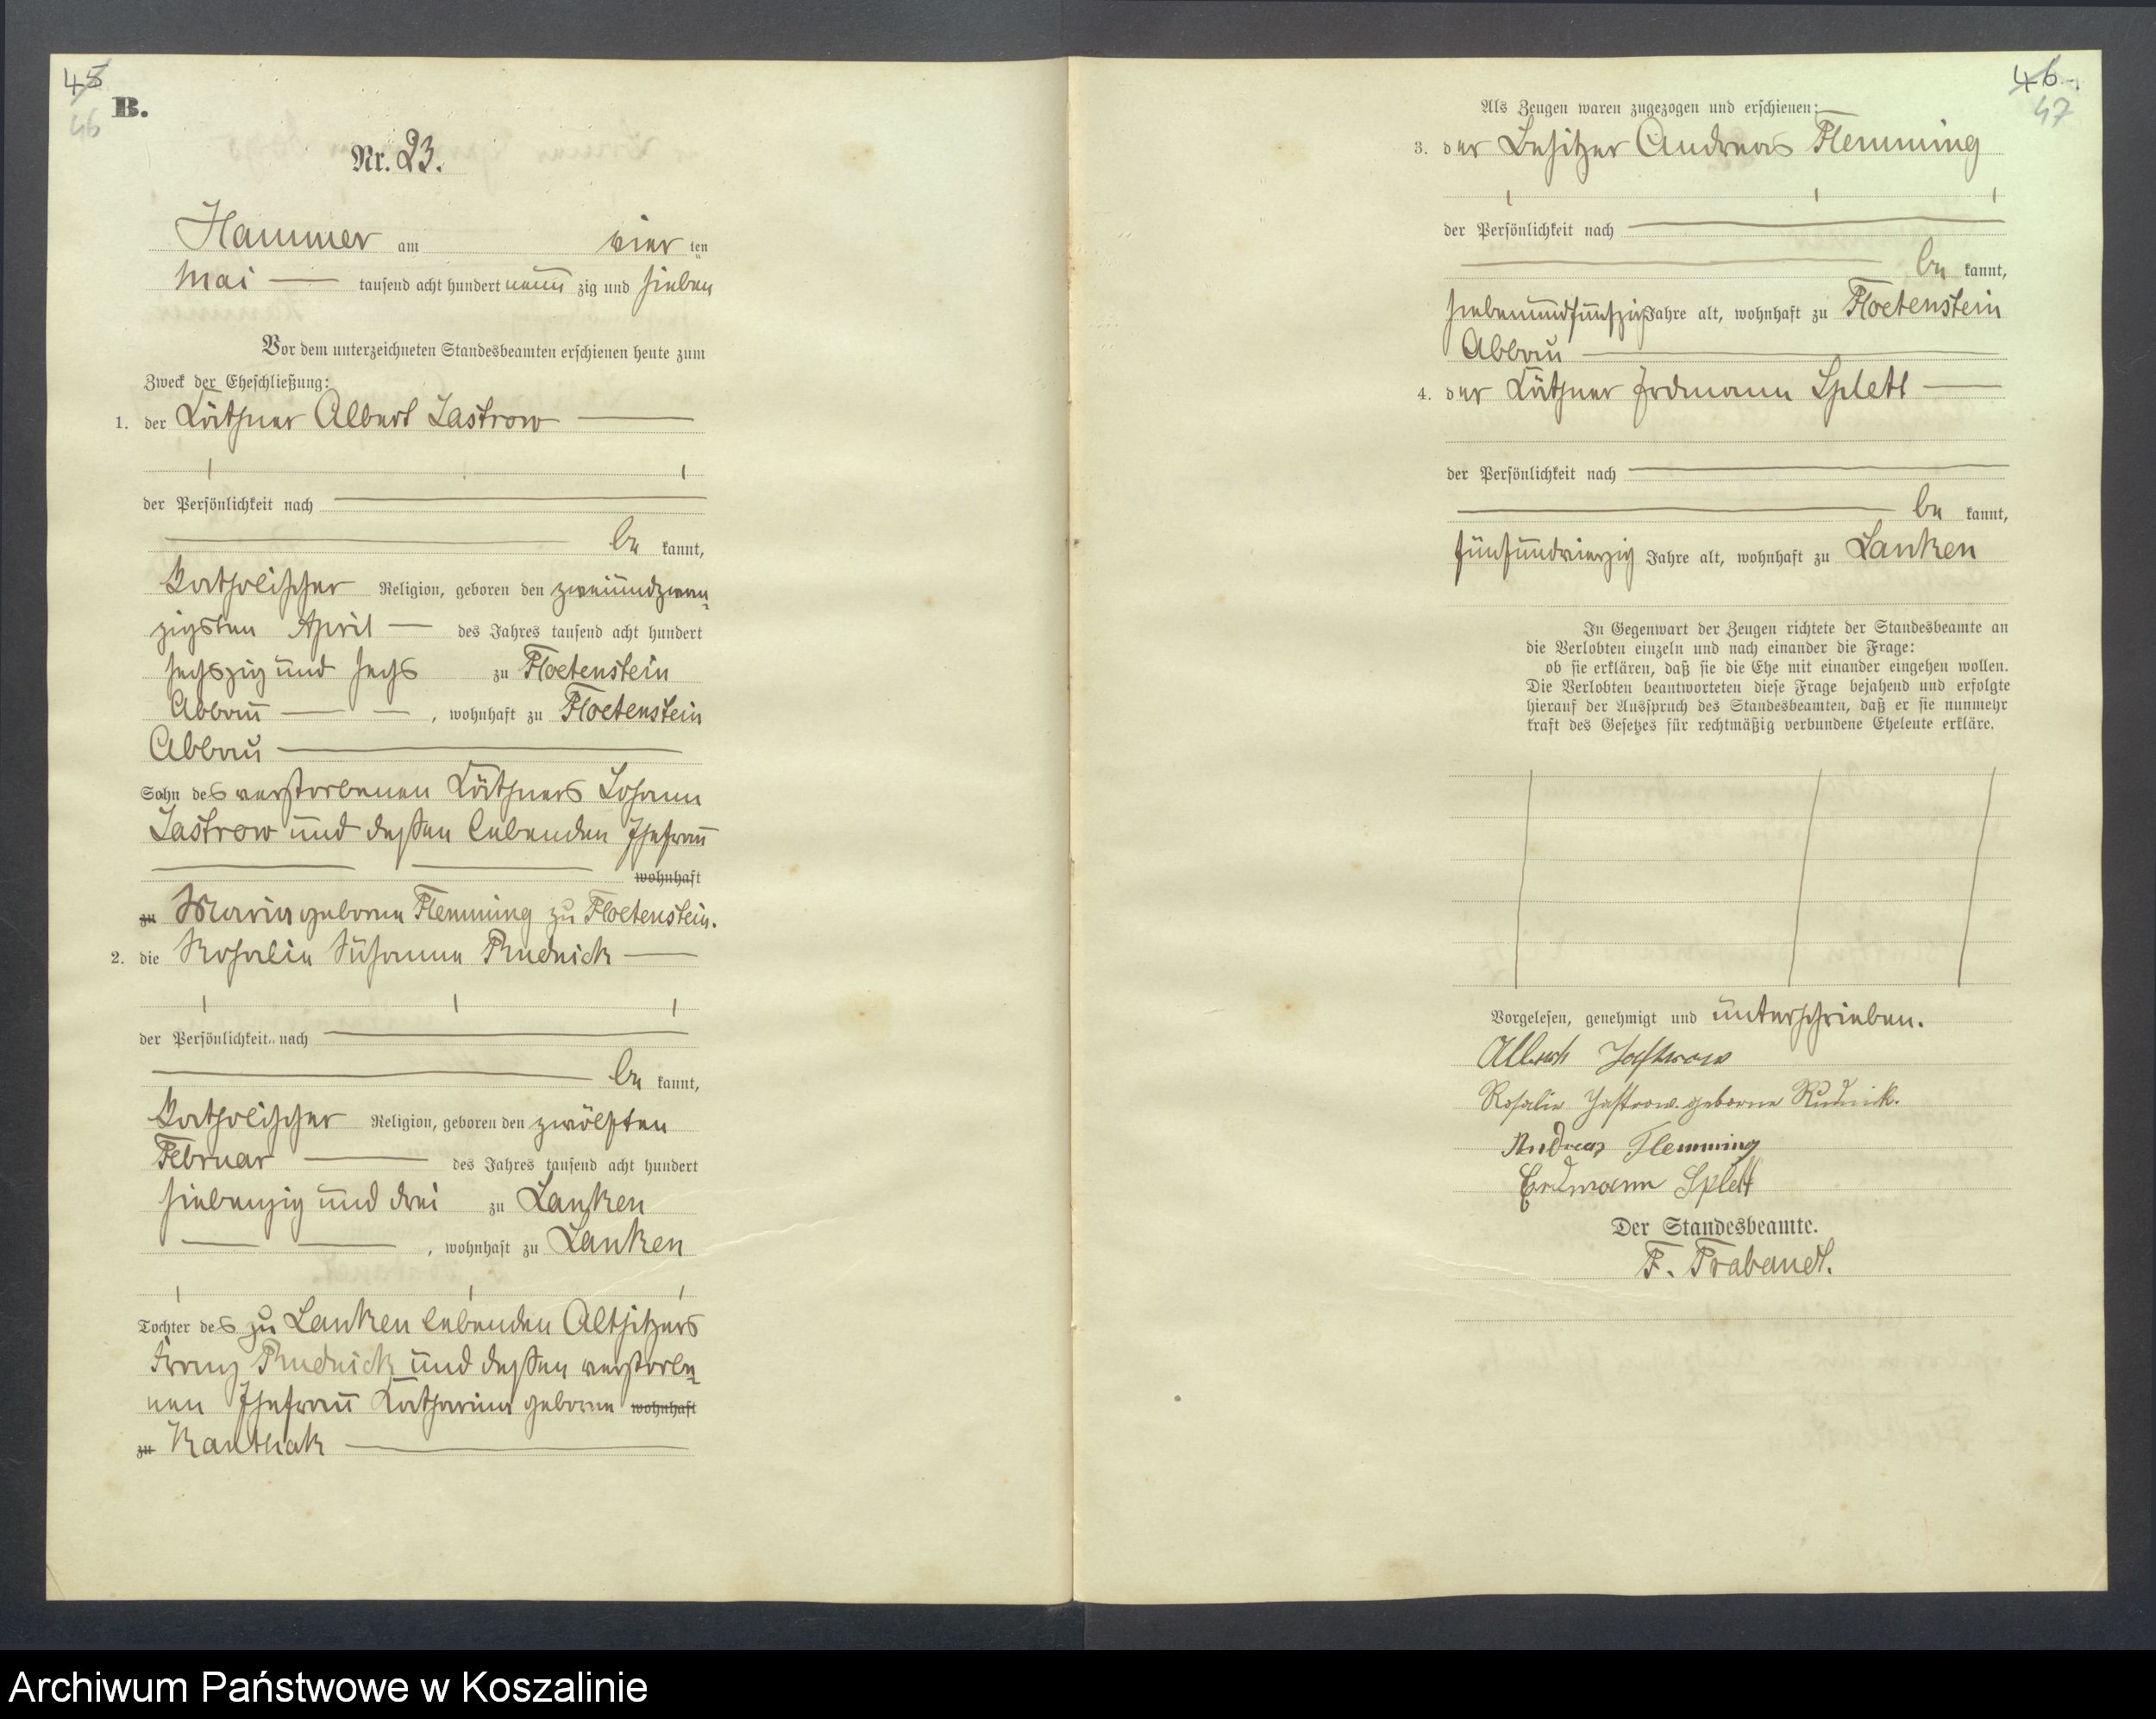 45
46
B.
Nr. 23.
Hammer am vier ten
Mai tausend acht hundert neun zig und sieben
Vor dem unterzeichneten Standesbeamten erschienen heute zum
Zweck der Eheschließung:
1. der Käthner Albert Jastrow
der Persönlichkeit nach
be kannt,
katholischer Religion, geboren den zweiundzwan-
zigsten April des Jahres tausend acht hundert
sechszig und sechs zu Floetenstein
Abbau , wohnhaft zu Floetenstein
Abbau
Sohn des verstorbenen Käthners Johann
Jastrow und dessen lebenden Ehefrau
wohnhaft
zu Maria geborne Flemming zu Floetenstein.
2. die Rosalie Susanna Rudnick
der Persönlichkeit nach
be kannt,
katholischer Religion, geboren den zwölften
Februar des Jahres tausend acht hundert
siebenzig und drei zu Lanken
, wohnhaft zu Lanken
Tochter des zu Lanken lebenden Altsitzers
Franz Rudnick und dessen verstorbe-
nen Ehefrau Katharina geborne wohnhaft
zu Kanthak
46
47
Als Zeugen waren zugezogen und erschienen:
3. der Besitzer Andreas Flemming
der Persönlichkeit nach
be kannt,
siebenundfünfzig Jahre alt, wohnhaft zu Floetenstein
Abbau
4. der Käthner Erdmann Splett
der Persönlichkeit nach
be kannt,
fünfundvierzig Jahre alt, wohnhaft zu Lanken
In Gegenwart der Zeugen richtete der Standesbeamte an
die Verlobten einzeln und nach einander die Frage:
ob sie erklären, daß sie die Ehe mit einander eingehen wollen.
Die Verlobten beantworteten diese Frage bejahend und erfolgte
hierauf der Ausspruch des Standesbeamten, daß er sie nunmehr
kraft des Gesetzes für rechtmäßig verbundene Eheleute erkläre.
Vorgelesen, genehmigt und unterschrieben.
Albert Jastrow
Rosalie Jastrow geborne Rudnik.
Andreas Flemming
Erdmann Splett
Der Standesbeamte.
F. Trabandt.
Archiwum Państwowe w Koszalinie